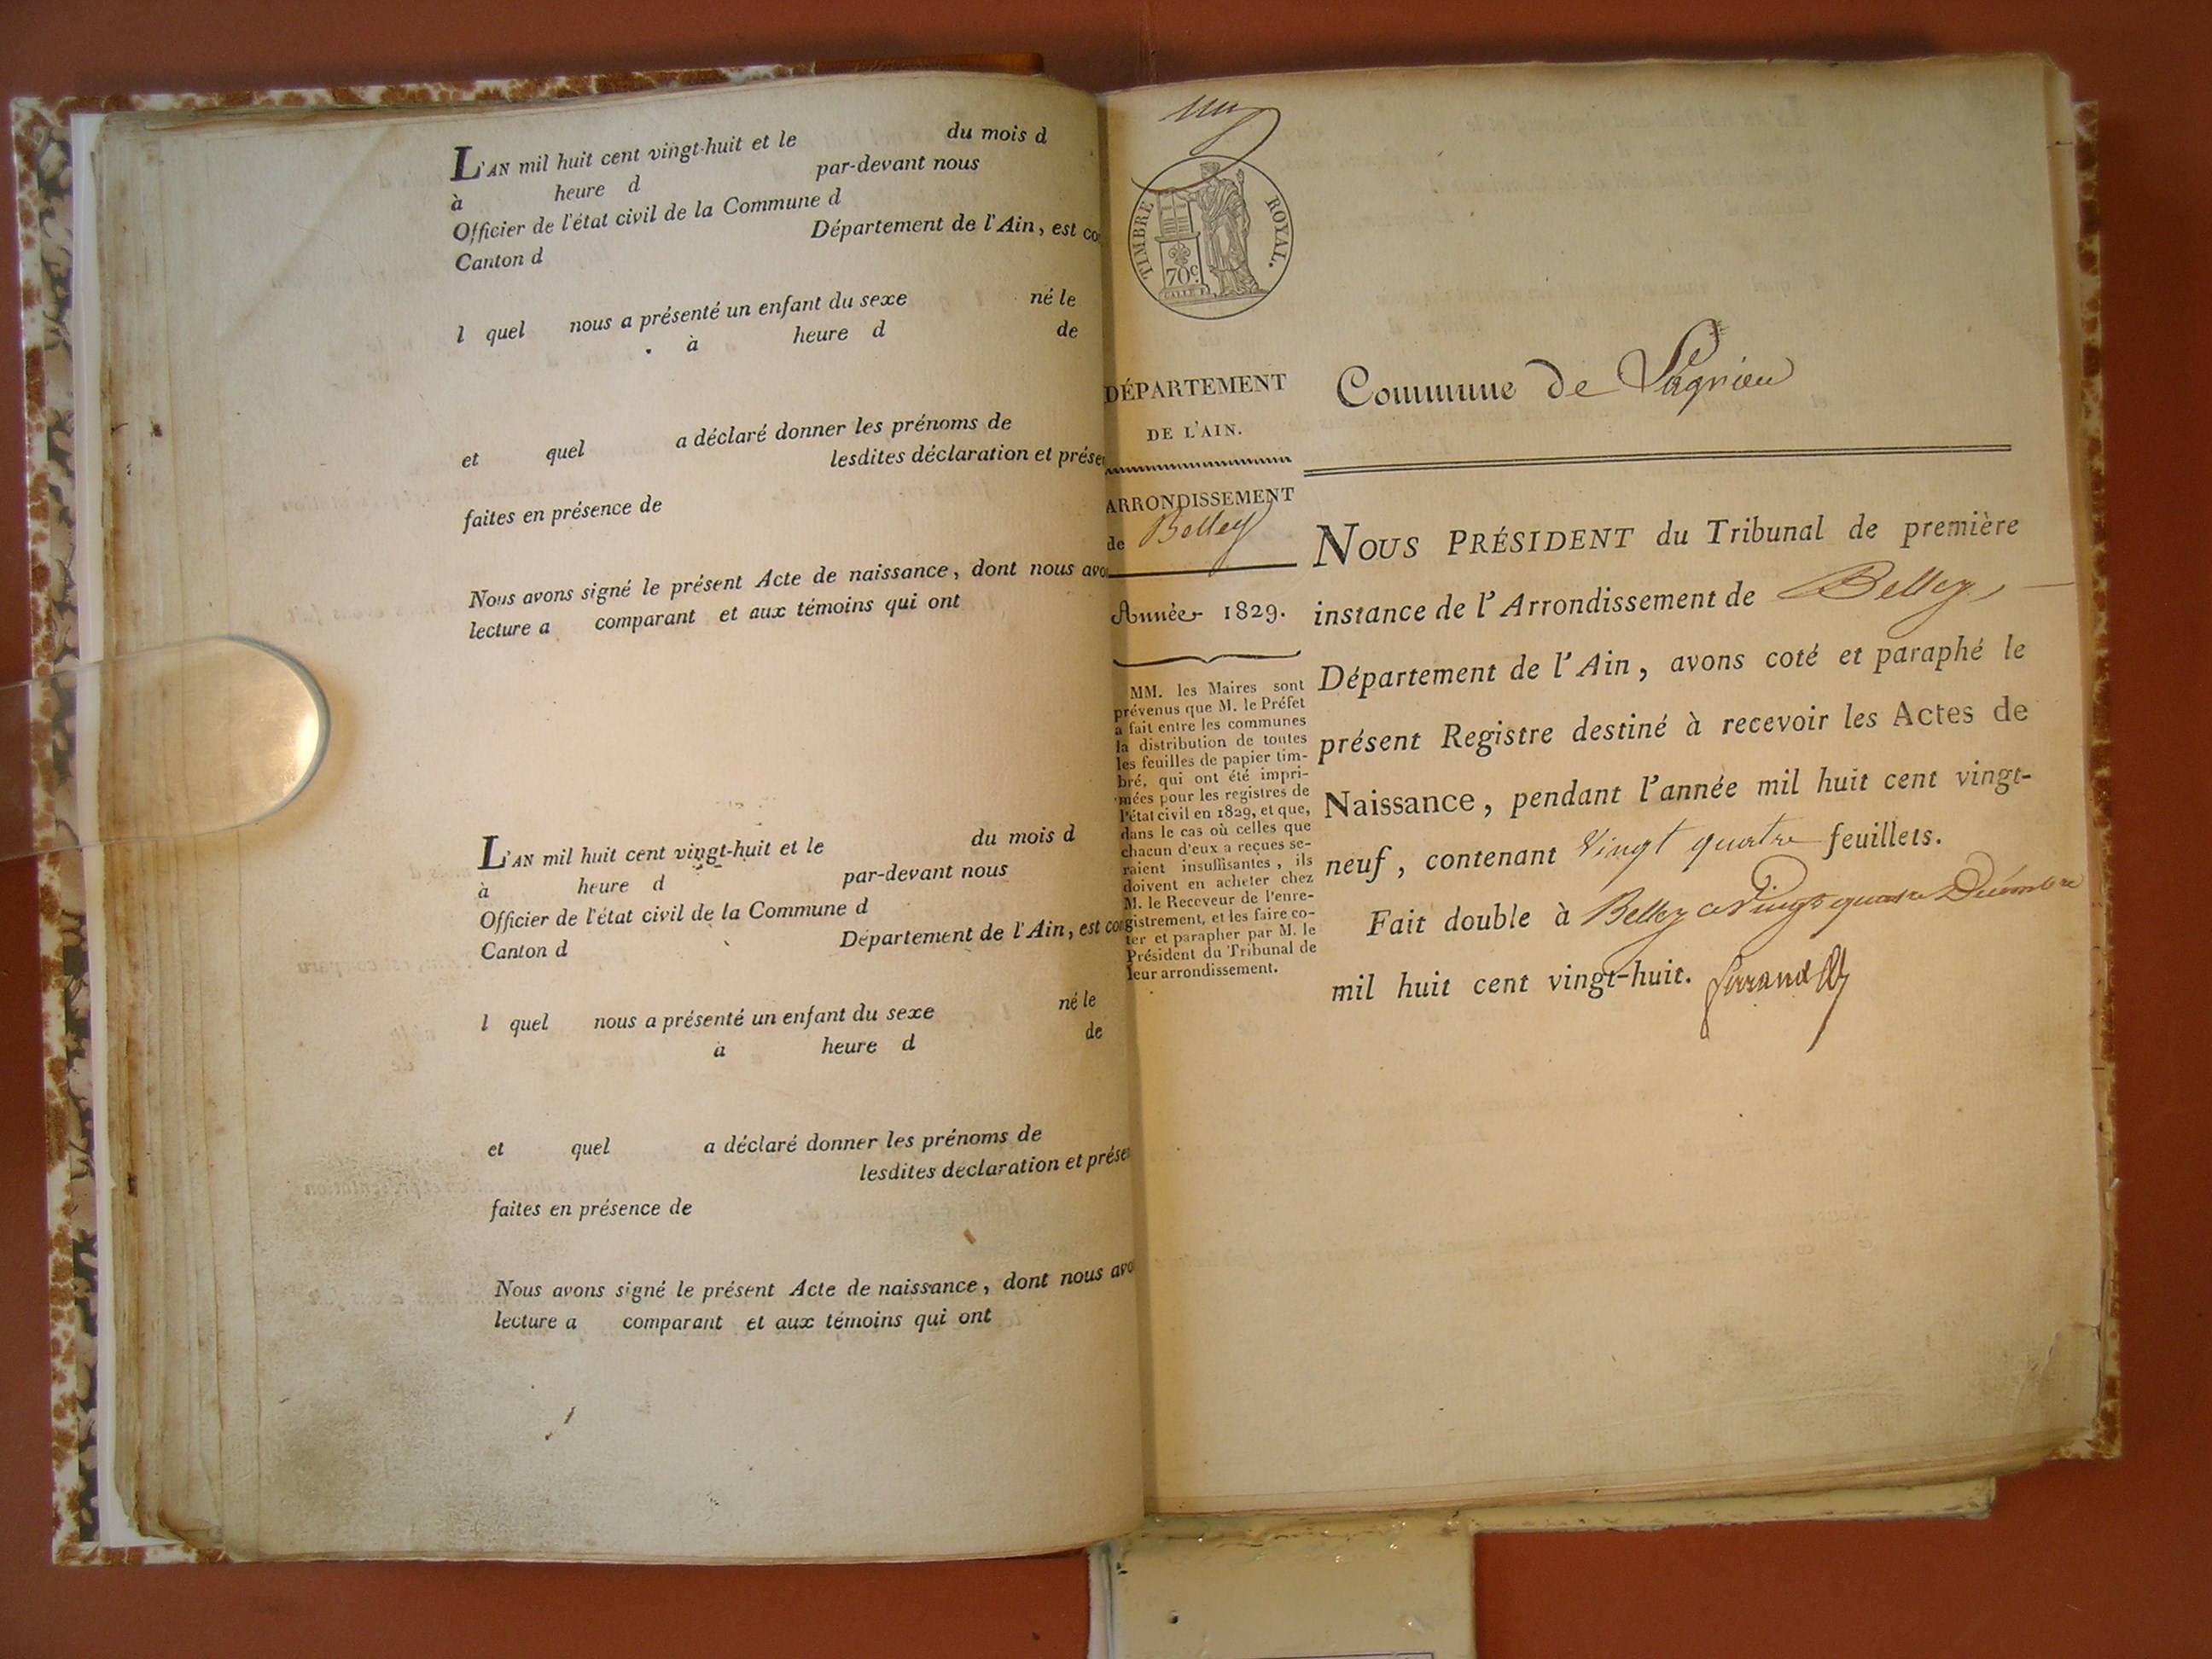 L'AN mil huit cent vingt-huit et le du mois d
à heure d par-devant nous
Officier de l'état civil de la Commune d
Canton d Département de l'Ain, est co
l quel nous a présenté un enfant du sexe né le
à heure d de
et quel a déclaré donner les prénoms de
lesdites déclaration et prése
faites en présence de
Nous avons signé le présent Acte de naissance, dont nous avo
lecture a comparant et aux témoins qui ont
L'AN mil huit cent vingt-huit et le du mois d
à heure d par-devant nous
Officier de l'état civil de la Commune d
Canton d Département de l'Ain, est com
l quel nous a présenté un enfant du sexe né le
à heure d de
et quel a déclaré donner les prénoms de
lesdites déclaration et prése
faites en présence de
Nous avons signé le présent Acte de naissance, dont nous avo
lecture a comparant et aux témoins qui ont
TIMBRE ROYAL.
70c
DÉPARTEMENT
DE L'AIN.
ARRONDISSEMENT
de Belley
Année 1829.
MM. les Maires sont
prévenus que M. le Préfet
a fait entre les communes
la distribution de toutes
les feuilles de papier tim-
bré, qui ont été impri-
mées pour les registres de
l'état civil en 1829, et que,
dans le cas où celles que
chacun d'eux a reçues se-
raient insuffisantes, ils
doivent en acheter chez
M. le Receveur de l'enre-
gistrement, et les faire co-
ter et parapher par M. le
Président du Tribunal de
leur arrondissement.
Commune de Lagnieu
NOUS PRÉSIDENT du Tribunal de première
instance de l'Arrondissement de Belley
Département de l'Ain, avons coté et paraphé le
présent Registre destiné à recevoir les Actes de
Naissance, pendant l'année mil huit cent vingt-
neuf, contenant Vingt quatre feuillets.
Fait double à Belley ce Vingt quatre Décembre
mil huit cent vingt-huit.